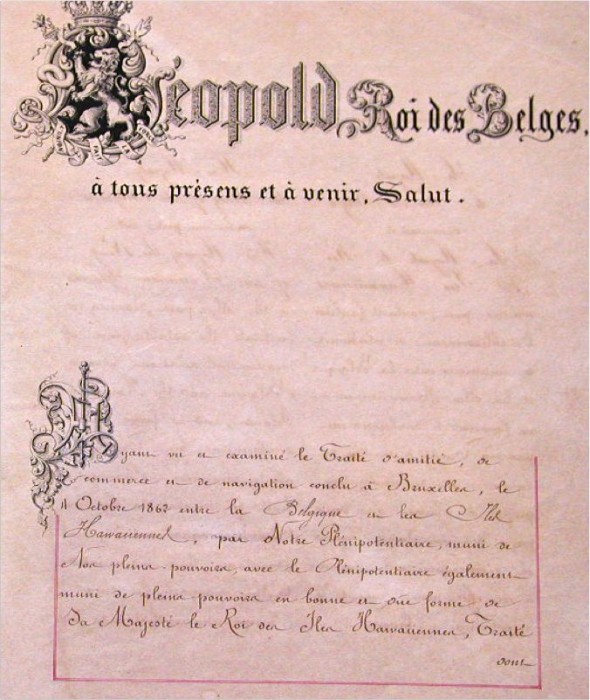 Léopold, Roi des Belges,
à tous présens et à venir, Salut.
Ayant vu et examiné le Traité d'amitié, de
commerce et de navigation conclu à Bruxelles, le
4 Octobre 1862 entre la Belgique et les Iles
Hawaiiennes, par Notre Plénipotentiaire, muni de
Nos pleins-pouvoirs, avec le Plénipotentiaire également
muni de pleins-pouvoirs en bonne et due forme de
Sa Majesté le Roi des Iles Hawaiiennes, Traité
dont